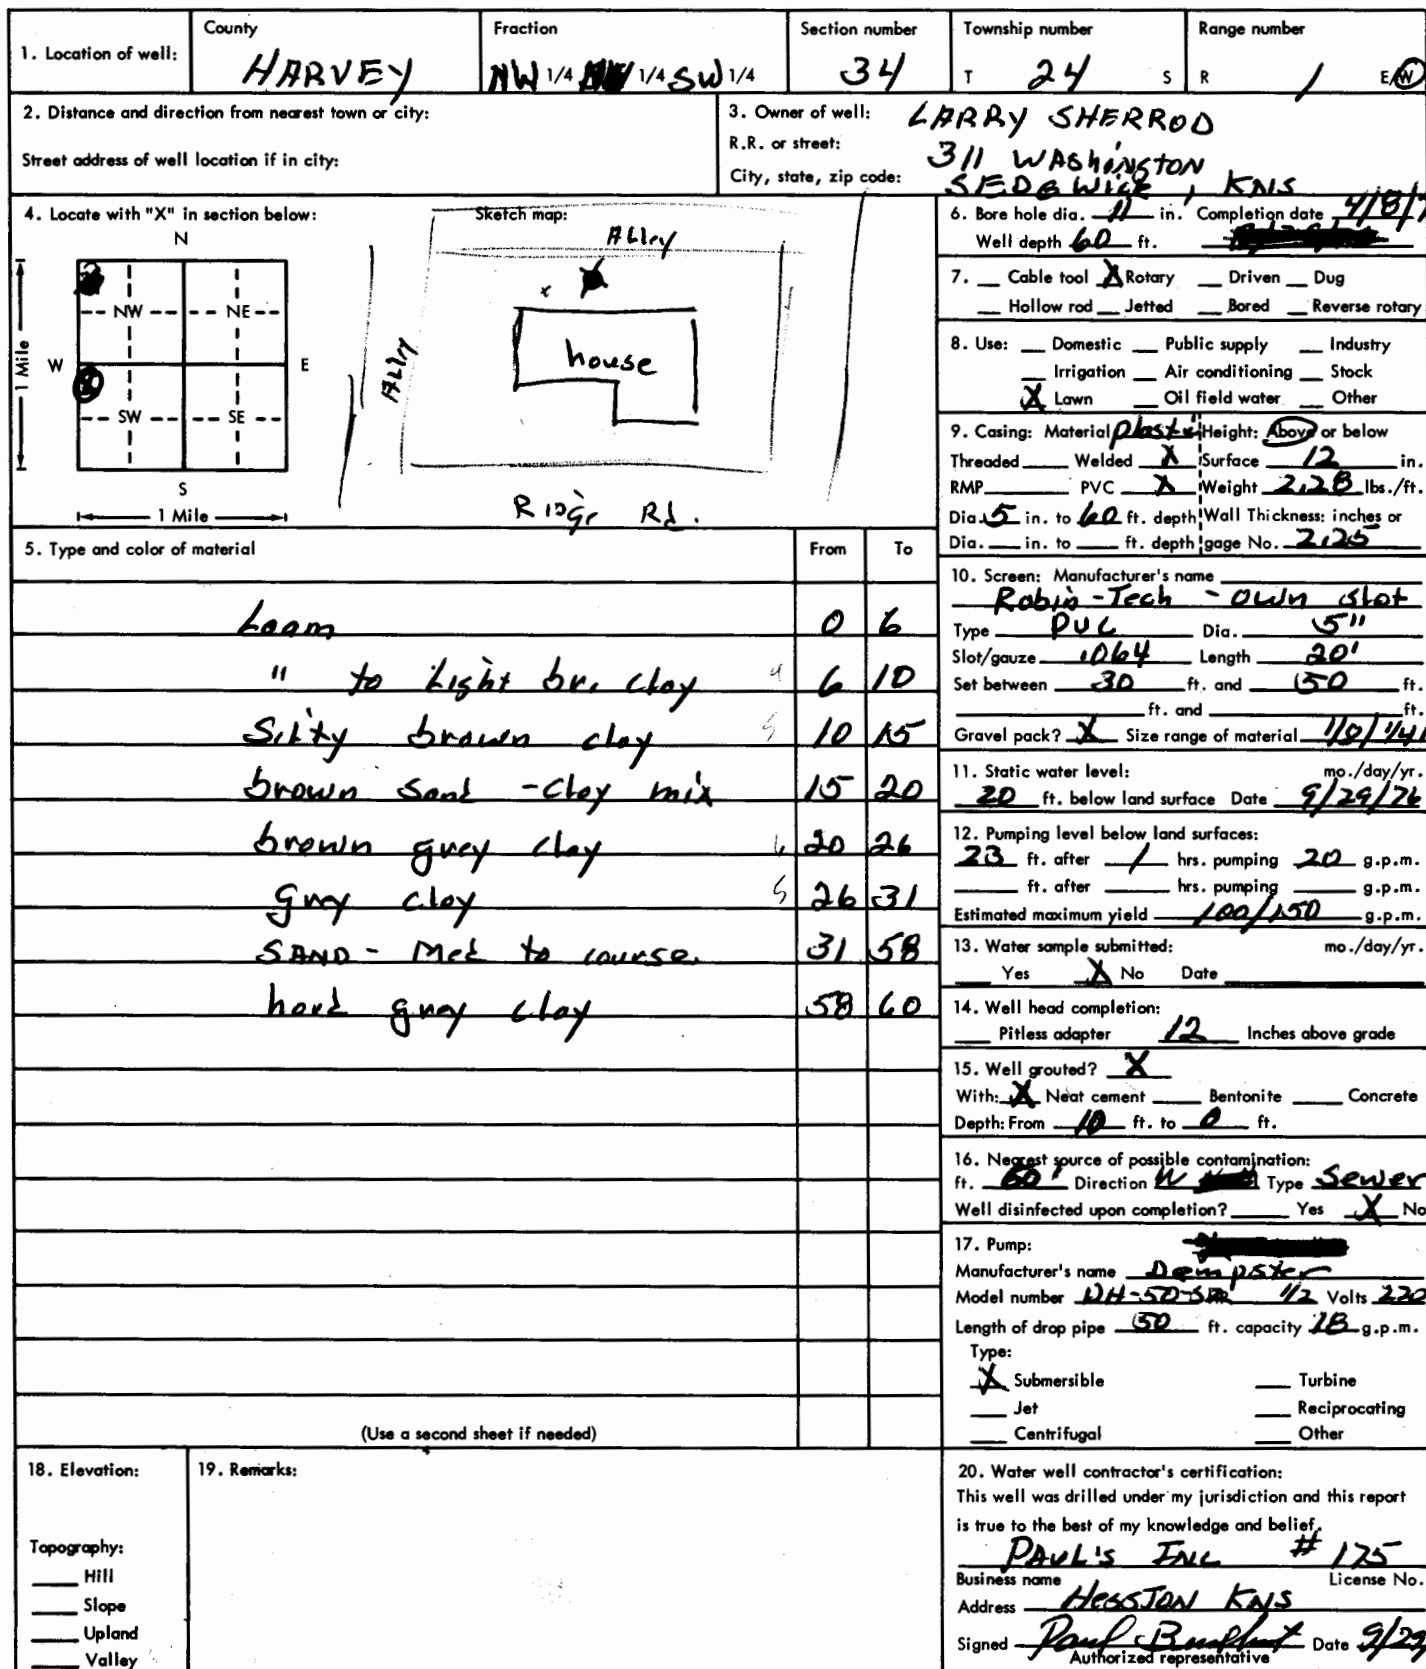 1. Location of well:
County
HARVEY
Fraction
NW 1/4 1/4 SW 1/4
Section number
34
Township number
T 24 S
Range number
R 1 E/W
2. Distance and direction from nearest town or city:
Street address of well location if in city:
3. Owner of well: LARRY SHERROD
R.R. or street: 311 WAShiNGTON
City, state, zip code: SEDGWICK, KNS
4. Locate with "X" in section below:
N
NW NE
W E
SW SE
S
1 Mile
1 Mile
Sketch map:
Alley
x
house
Alley
Ridge Rd.
5. Type and color of material From To
Loam 0 6
" to Light br. clay 4 6 10
Silty brown clay 5 10 15
brown Sand - Clay mix 15 20
brown grey clay 6 20 26
gray clay 5 26 31
SAND - Med to course. 31 58
hard gray clay 58 60
(Use a second sheet if needed)
6. Bore hole dia. 11 in. Completion date 4/8/7
Well depth 60 ft.
7. Cable tool X Rotary Driven Dug
Hollow rod Jetted Bored Reverse rotary
8. Use: Domestic Public supply Industry
Irrigation Air conditioning Stock
X Lawn Oil field water Other
9. Casing: Material plastic Height: Above or below
Threaded Welded X Surface 12 in.
RMP PVC X Weight 2.28 lbs./ft.
Dia. 5 in. to 60 ft. depth Wall Thickness: inches or
Dia. in. to ft. depth gage No. 2.25
10. Screen: Manufacturer's name
Robin-Tech - own slot
Type PVC Dia. 5"
Slot/gauze .064 Length 20'
Set between 30 ft. and 50 ft.
ft. and ft.
Gravel pack? X Size range of material 1/8/1/4
11. Static water level: mo./day/yr.
20 ft. below land surface Date 9/29/76
12. Pumping level below land surfaces:
23 ft. after 1 hrs. pumping 20 g.p.m.
ft. after hrs. pumping g.p.m.
Estimated maximum yield 100/150 g.p.m.
13. Water sample submitted: mo./day/yr.
Yes X No Date
14. Well head completion:
Pitless adapter 12 Inches above grade
15. Well grouted? X
With: X Neat cement Bentonite Concrete
Depth: From 10 ft. to 0 ft.
16. Nearest source of possible contamination:
ft. 60' Direction W Type Sewer
Well disinfected upon completion? Yes X No
17. Pump:
Manufacturer's name Dempster
Model number 1/2 Volts 220
Length of drop pipe 50 ft. capacity 18 g.p.m.
Type:
X Submersible Turbine
Jet Reciprocating
Centrifugal Other
18. Elevation:
Topography:
Hill
Slope
Upland
Valley
19. Remarks:
20. Water well contractor's certification:
This well was drilled under my jurisdiction and this report
is true to the best of my knowledge and belief.
PAUL'S INC # 175
Business name License No.
Address HESSTON KNS
Signed Paul Date 9/29
Authorized representative